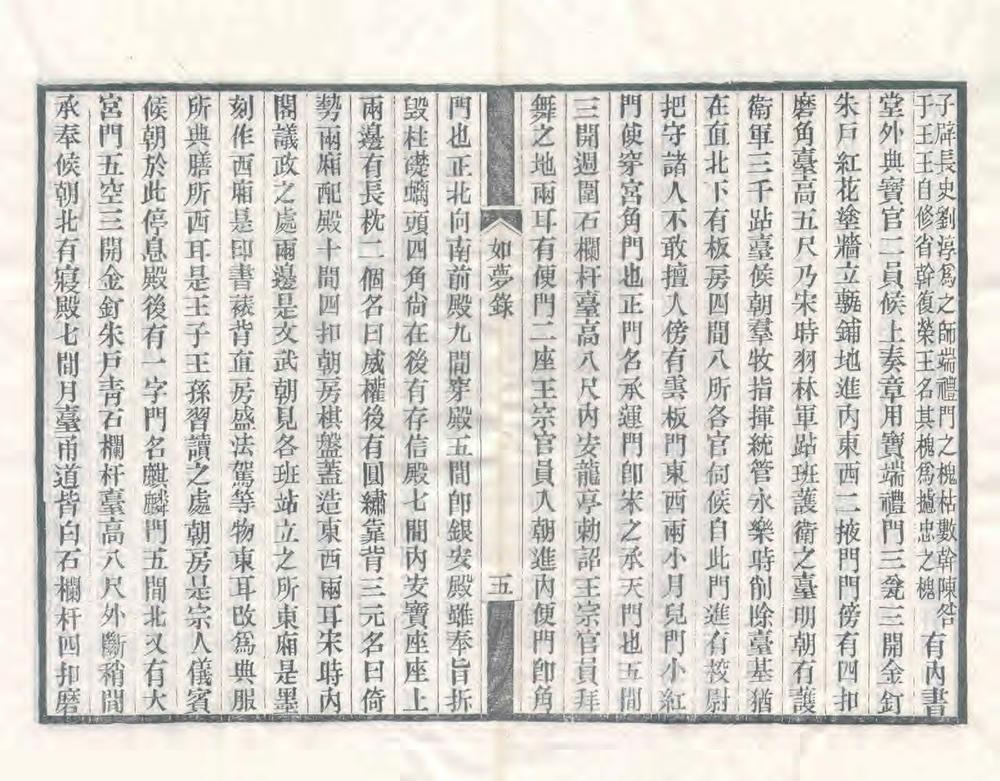 子辟長史劉淳爲之師端禮門之槐枯數幹陳咎
于王王自修省幹復榮王名其槐爲攄忠之槐
有內書
堂外典寶官二員候上奏章用寶端禮門三瓮三開金釘
朱戶紅花塗牆立甎鋪地進內東西二掖門門傍有四扣
磨角臺高五尺乃宋時羽林軍跕班護衛之臺明朝有護
衛軍三千跕臺候朝羣牧指揮統管永樂時削除臺基猶
在直北下有板房四間八所各官伺候自此門進有校尉
把守諸人不敢擅入傍有雲板門東西兩小月兒門小紅
門使穿宮角門也正門名承運門卽宋之承天門也五間
三開週圍石欄杆臺高八尺內安龍亭勅詔王宗官員拜
舞之地兩耳有便門二座王宗官員入朝進內便門卽角
如夢錄
五
門也正北向南前殿九間穿殿五間卽銀安殿雖奉旨拆
毀柱礎螭頭四角尙在後有存信殿七間內安寶座座上
兩邊有長枕二個名曰威權後有圓繡靠背三元名曰倚
勢兩廂配殿十間四扣朝房棋盤蓋造東西兩耳宋時內
閣議政之處兩邊是文武朝見各班站立之所東廂是墨
刻作西廂是印書裱背直房盛法駕等物東耳改爲典服
所典膳所西耳是王子王孫習讀之處朝房是宗人儀賓
候朝於此停息殿後有一字門名麒麟門五間北又有大
宮門五空三開金釘朱戶靑石欄杆臺高八尺外斷稍間
承奉候朝北有寢殿七間月臺甬道皆白石欄杆四扣磨